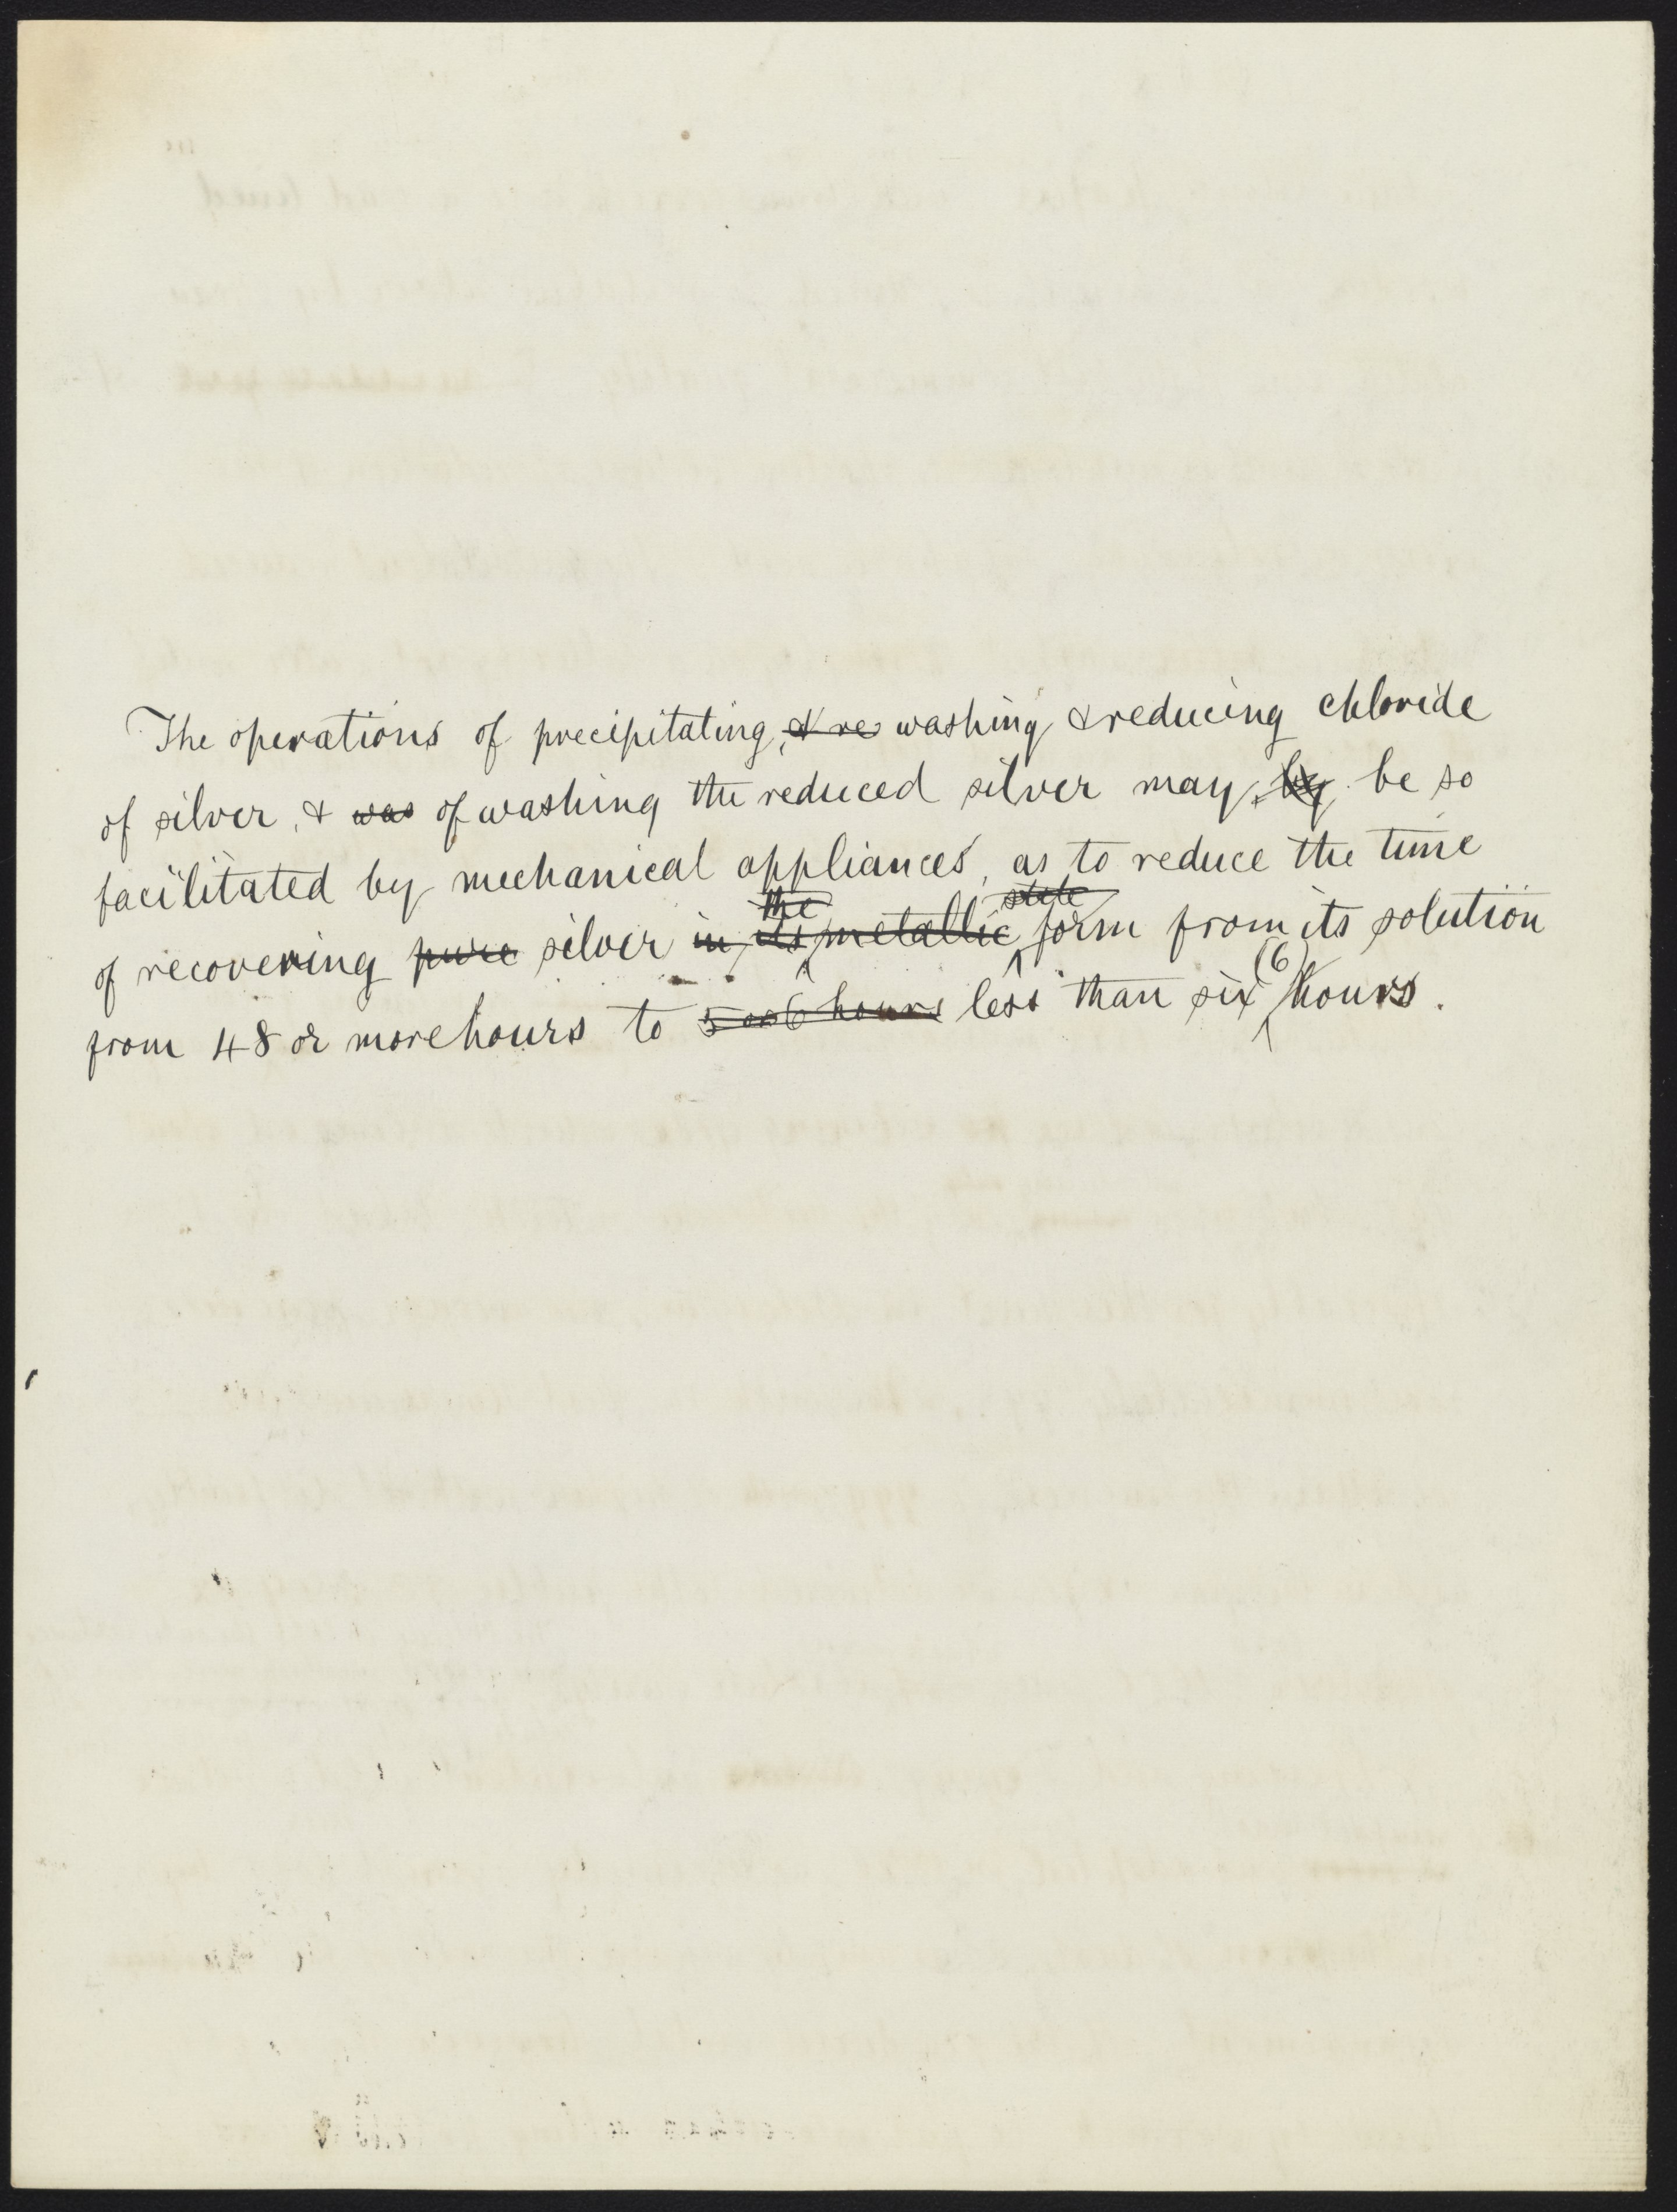 The operations of precipitating, & re washing & reducing chloride
of silver, & was of washing the reduced silver may, by be so
facilitated by mechanical appliances, as to reduce the time
the state
of recovering pure silver in its metallic form from its solution
(6)
from 48 or more hours to 5 or 6 hours less than six hours.